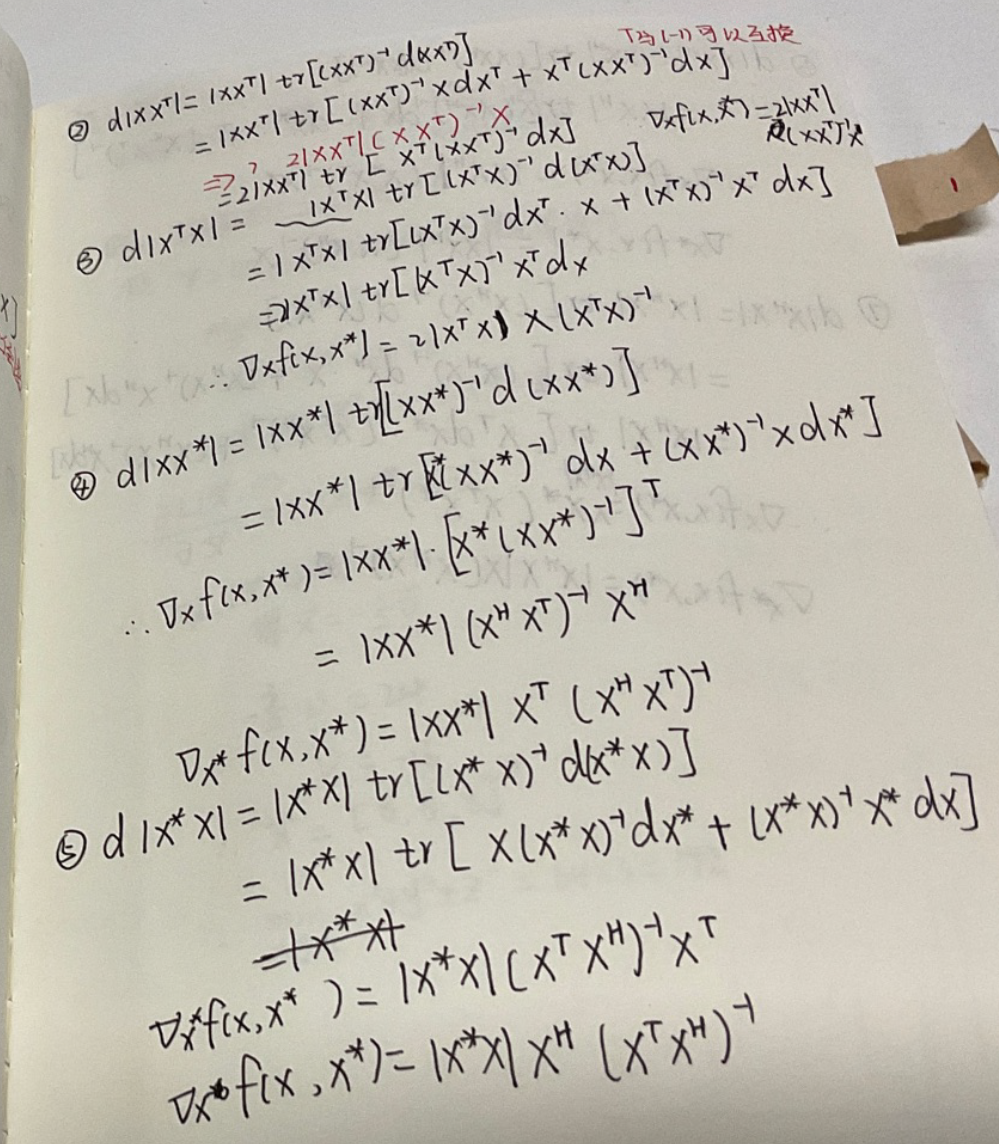 T与(-1)可以互换
② d|XXᵀ| = |XXᵀ| tr[(XXᵀ)⁻¹ d(XXᵀ)]
= |XXᵀ| tr[(XXᵀ)⁻¹ X dXᵀ + Xᵀ(XXᵀ)⁻¹dX]
⇒? 2|XXᵀ|(XXᵀ)⁻¹X
∇ₓf(X,X*) = 2|XXᵀ|
(XXᵀ)⁻¹X
= 2|XXᵀ| tr[Xᵀ(XXᵀ)⁻¹dX]
③ d|XᵀX| = |XᵀX| tr[(XᵀX)⁻¹ d(XᵀX)]
= |XᵀX| tr[(XᵀX)⁻¹dXᵀ·X + (XᵀX)⁻¹Xᵀ dX]
= 2|XᵀX| tr[(XᵀX)⁻¹XᵀdX
∴ ∇ₓf(X,X*) = 2|XᵀX| X(XᵀX)⁻¹
④ d|XX*| = |XX*| tr[(XX*)⁻¹ d(XX*)]
= |XX*| tr[X*(XX*)⁻¹ dX + (XX*)⁻¹XdX*]
∴ ∇ₓf(X,X*) = |XX*|·[X*(XX*)⁻¹]ᵀ
= |XX*|(XᴴXᵀ)⁻¹Xᴴ
∇ₓ*f(X,X*) = |XX*| Xᵀ(XᴴXᵀ)⁻¹
⑤ d|X*X| = |X*X| tr[(X*X)⁻¹ d(X*X)]
= |X*X| tr[X(X*X)⁻¹dX* + (X*X)⁻¹X*dX]
= |X*X|
∇ₓ*f(X,X*) = |X*X|(XᵀXᴴ)⁻¹Xᵀ
∇ₓf(X,X*) = |X*X| Xᴴ(XᵀXᴴ)⁻¹